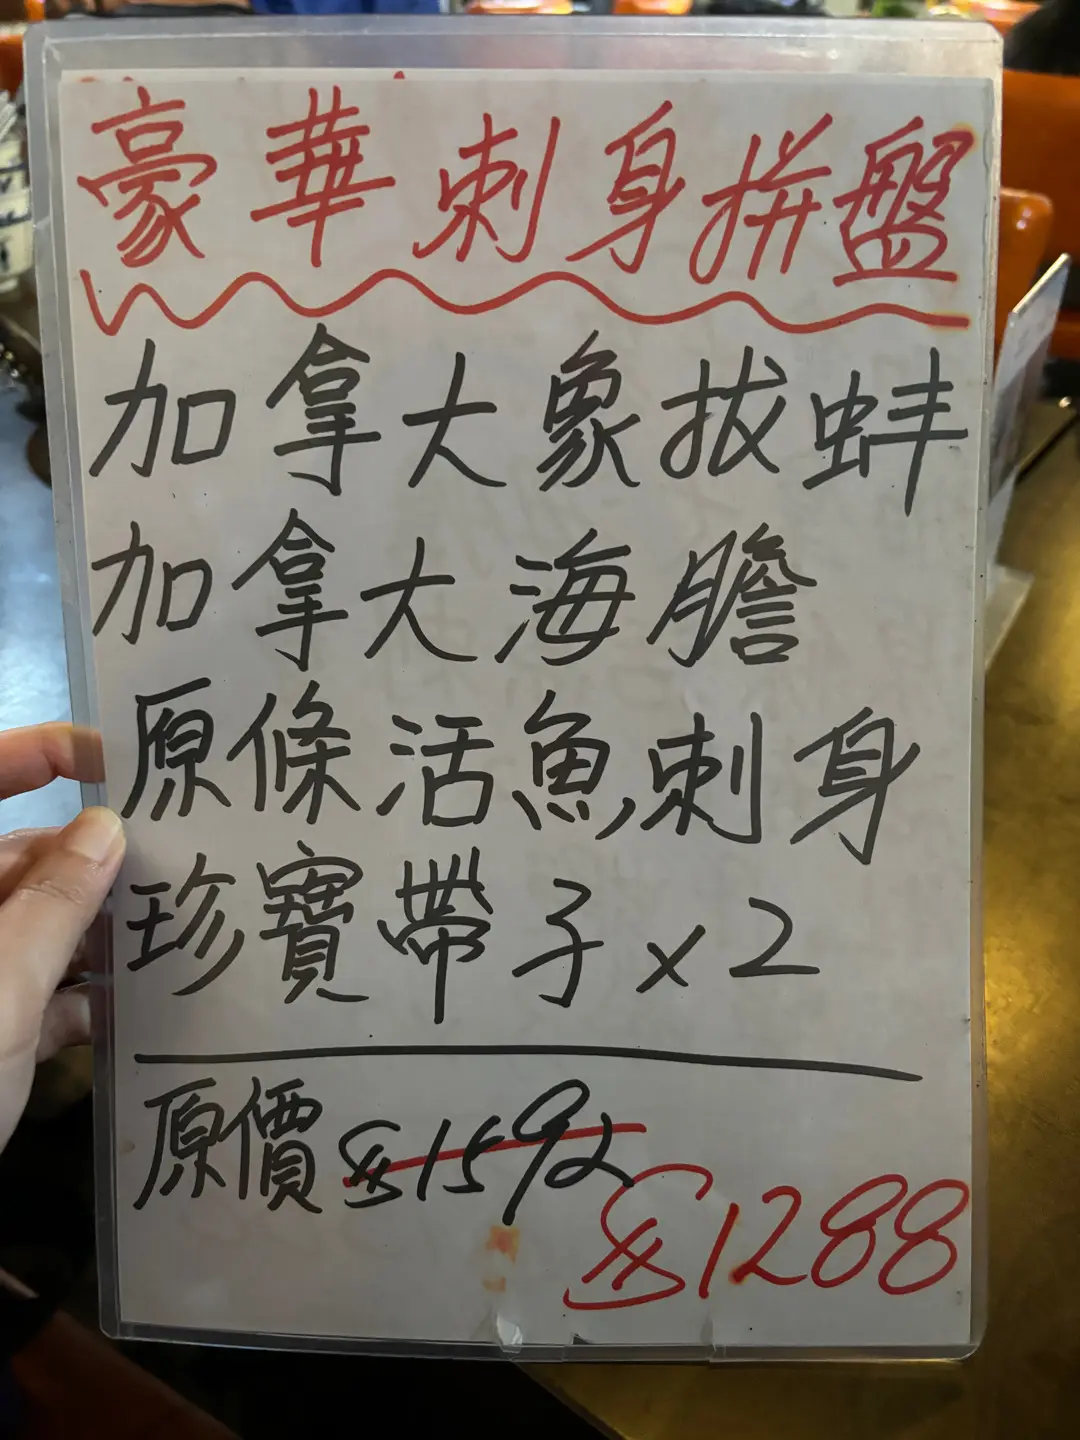 豪華刺身拼盤
加拿大象拔蚌
加拿大海膽
原條活魚刺身
珍寶帶子x2
原價$1592
$1288